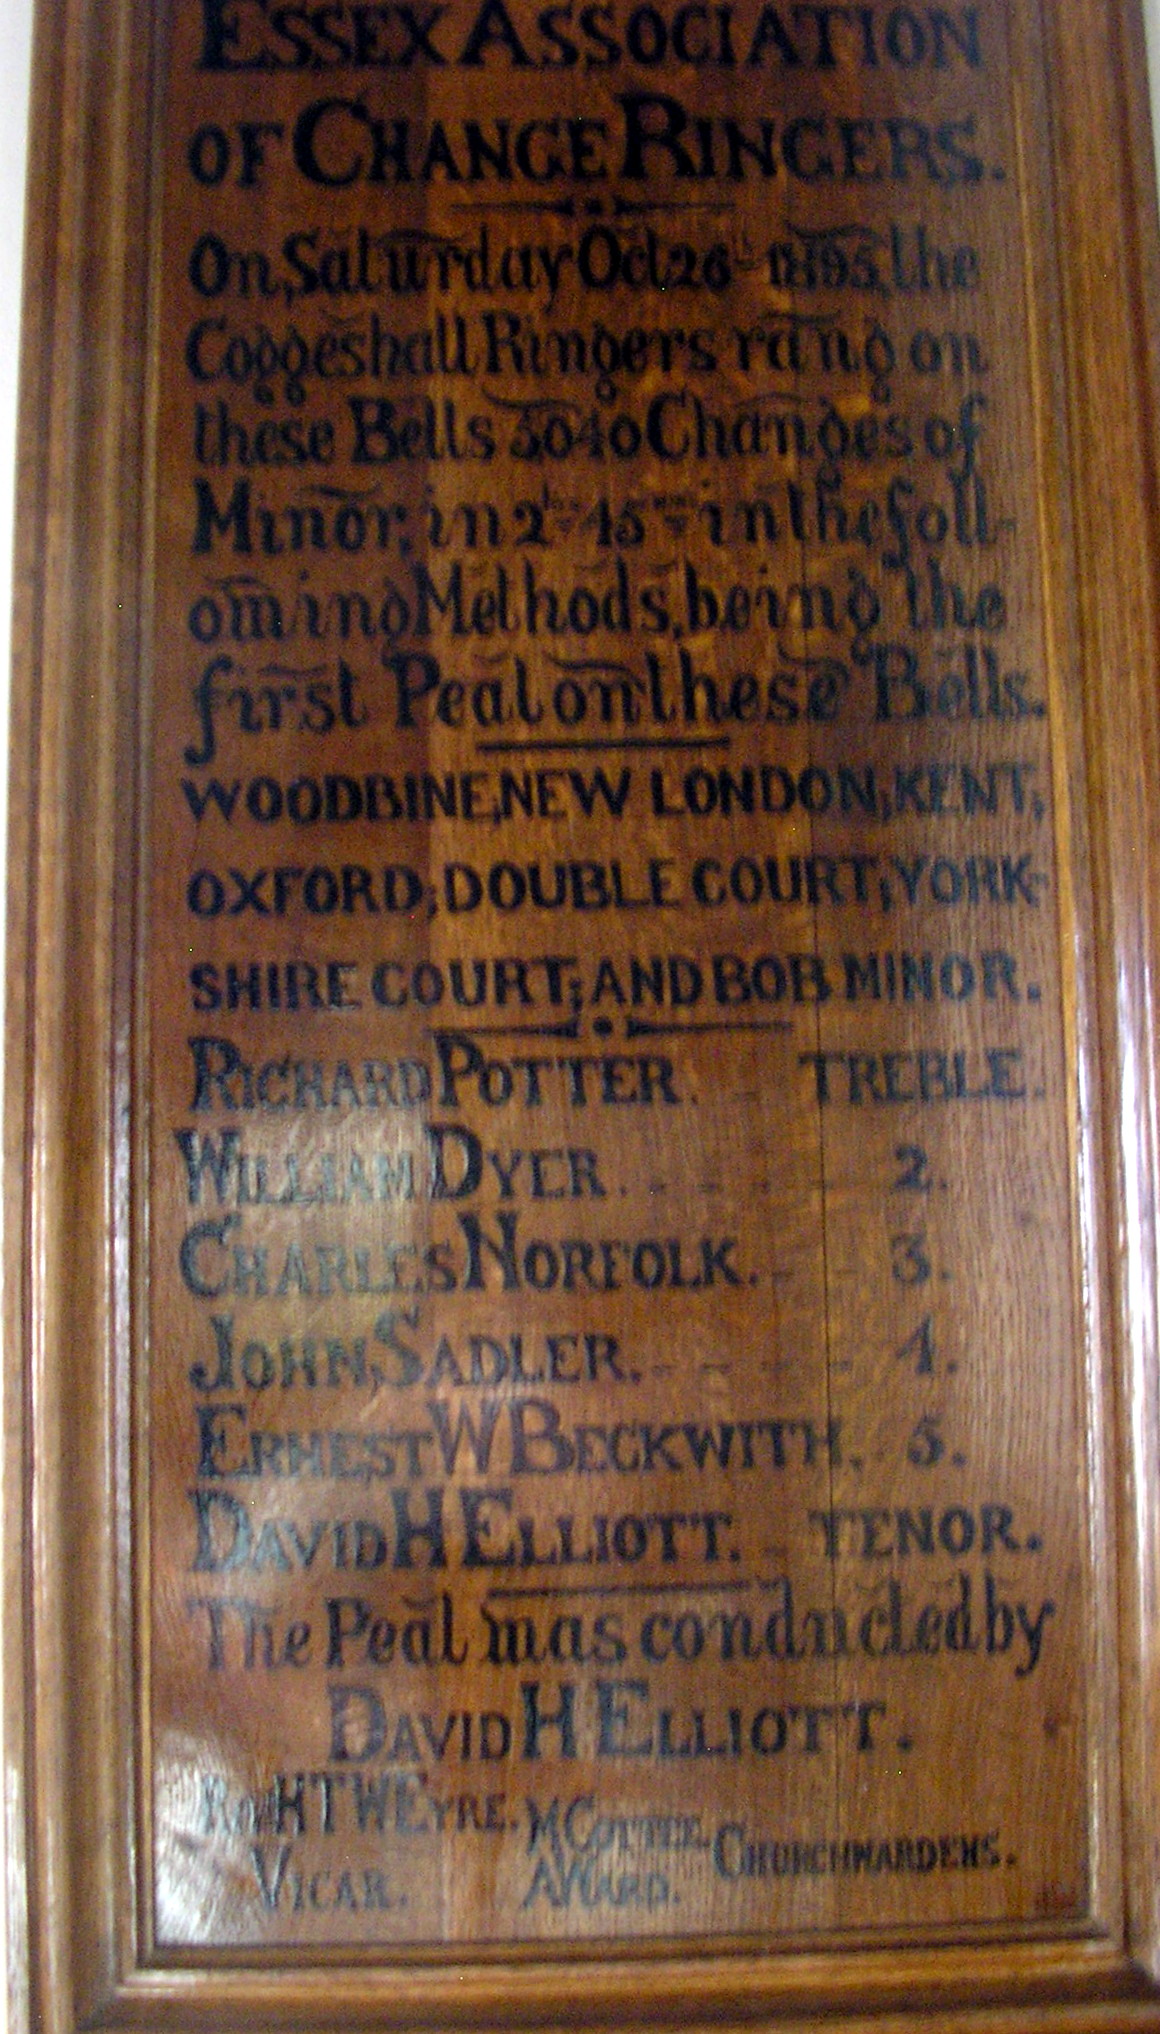 ESSEX ASSOCIATION
OF CHANGE RINGERS.
On, Saturday Oct 26th 1895, the
Coggeshall Ringers rang on
these Bells 5040 Changes of
Minor, in 2 45 in the foll-
owing Methods, being the
first Peal on these Bells.
WOODBINE, NEW LONDON, KENT,
OXFORD; DOUBLE COURT; YORK-
SHIRE COURT; AND BOB MINOR.
RICHARD POTTER. TREBLE.
WILLIAM DYER. 2.
CHARLES NORFOLK. 3.
JOHN SADLER. 4.
ERNEST W BECKWITH. 5.
DAVID H ELLIOTT. TENOR.
The Peal was conducted by
DAVID H ELLIOTT.
H T W EYRE. M COTTEE.
VICAR. A WARD. CHURCHWARDENS.